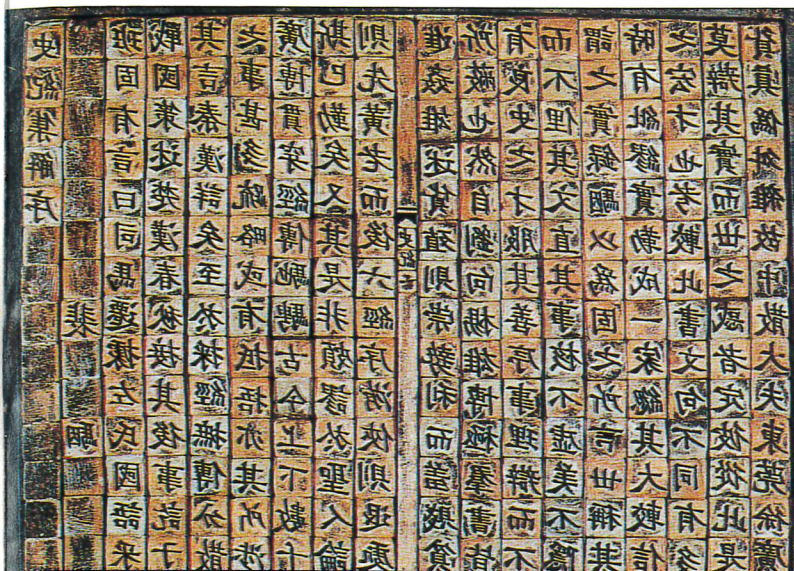 史紀集解序
裴駰
班固有言曰司馬遷據左氏國語采
戰國策述楚漢春秋接其後事訖于
其言秦漢詳矣至於採經摭傳分散
之事甚多疏略或有抵捂亦其所涉
廣博貫穿經傳馳騁古今上下數千
斯已勤矣又其是非頗謬於聖人論
則先黃老而後六經序游俠則退處
史紀
進姦雄述貨殖則崇勢利而羞賤貧
所蔽也然自劉向楊雄博極羣書皆
有良史之才服其善序事理辯而不
而不俚其文直其事核不虛美不隱
謂之實錄駰以為固之所言世稱其
時有紕繆實勒成一家總其大較信
之宏才也考較此書文句不同有多
莫辯其實而世之惑者定彼從此是
貿真偽舛雜故中散大夫東莞徐廣